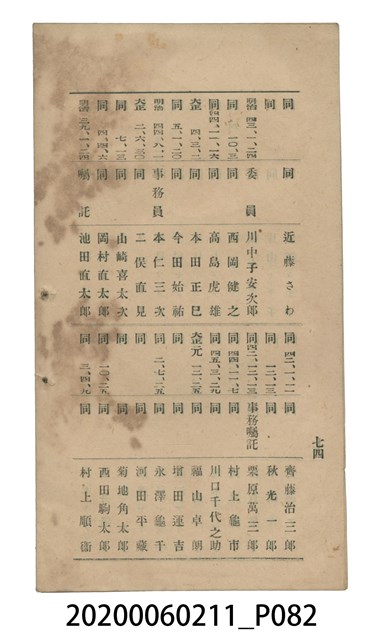 七四
同 同 近藤さわ
明治四三、一、二四 委員 川中子安次郎
同 一〇、三 同 西岡健之
同四四、一一、一六 同 高島虎雄
大正 四、三、二 同 本田正巳
同 五、一、二〇 同 今田始祐
明治四四、八、一 事務員 本仁三次
大正 二、六、三〇 同 二俣直見
同 七、一、三 同 山崎喜太次
同 四、四、六 同 岡村直太郎
明治 三九、一、二四 囑託 池田直太郎
同 四二、一、一 同 齊藤治三郎
同 一二、一三 同 秋光一郎
同四二、一二、一三 事務囑託 栗原萬三郎
同四四、一一、七 同 村上龜市
同四五、三、二九 同 川口千代之助
大正元 一二、二五 同 福山卓朗
同 同 增田運吉
同 二、七、二五 同 永澤龜千
同 同 河田平藏
同 同 菊地角太郎
同 一〇、二九 同 西田駒太郎
同 三、四、九 同 村上順衞
20200060211_P082